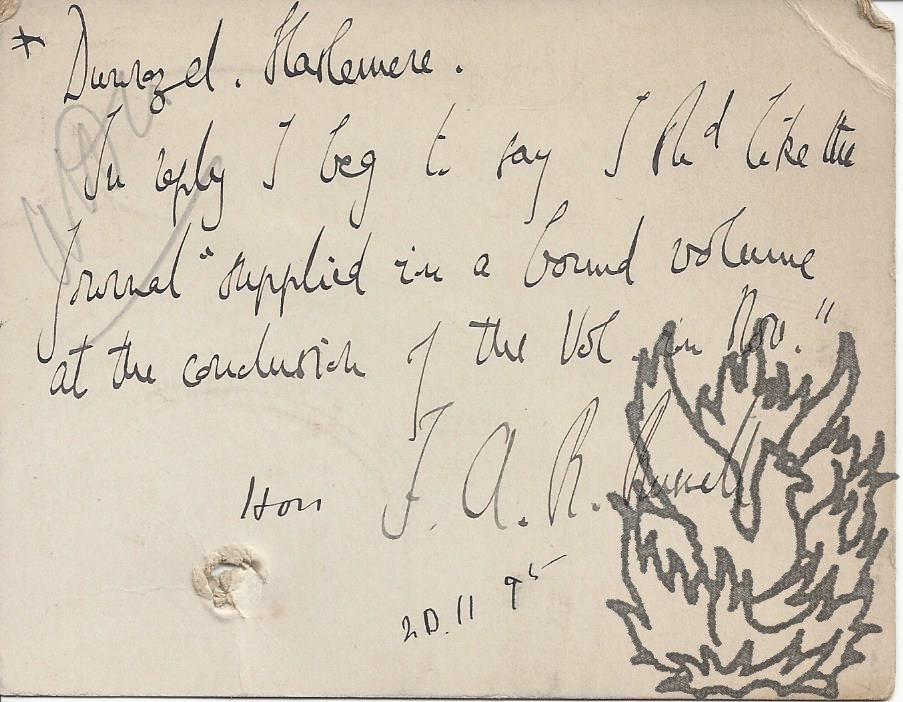 Dunrozel. Haslemere.
In reply I beg to say I shd like the
Journal "supplied in a bound volume
at the conclusion of the Vol. in Nov."
Hon F. A. R. Russell
20.11 95